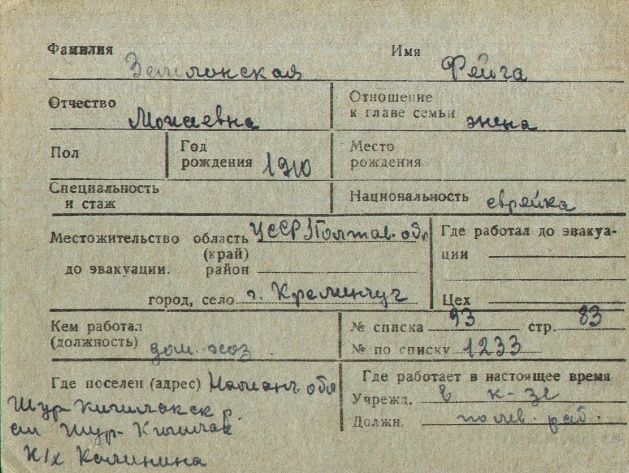 Фамилия Землянская Имя Фейга
Отчество Моисеевна Отношение к главе семьи жена
Пол Год рождения 1910 Место рождения
Специальность и стаж Национальность еврейка
Местожительство до эвакуации. область (край) УССР Полтав. обл
район
город, село г. Кременчуг
Где работал до эвакуации
Цех
Кем работал (должность) дом. хоз.
№ списка 93 стр. 83
№ по списку 1233
Где поселен (адрес) Наманг. обл
р.
к/х Калинина
Где работает в настоящее время
Учрежд. в к-зе
Должн. полев. раб.